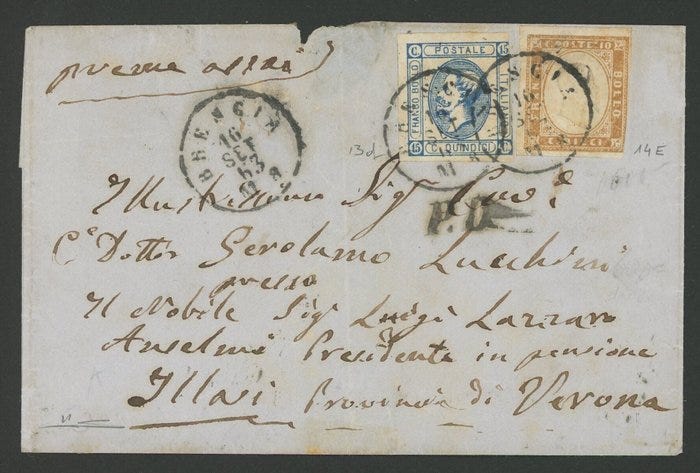 preme assai
C. POSTALE 15
FRANCO BOLLO
15 C. QUINDICI
C. POSTE 10
BOLLO
BRESCIA
16
SET
63
P.D.
13d
14E
Illustrissimo Sig.
Dottor Gerolamo Lucchini
presso
Il Nobile Sig. Luigi Lazzaro
Anselmi Presidente in pensione
Illasi Provincia di Verona